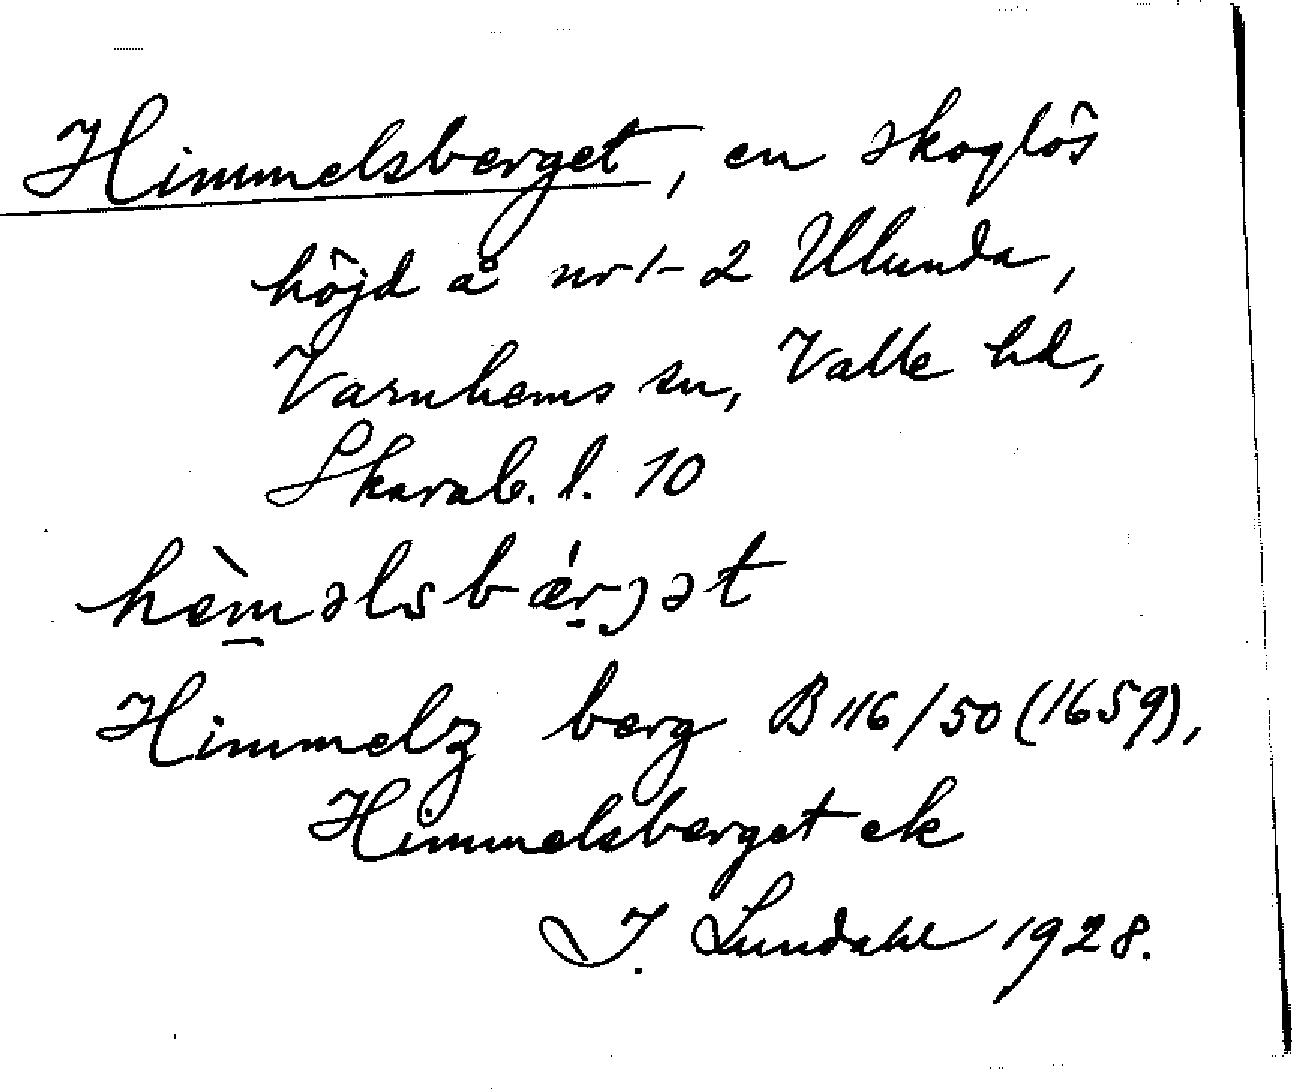 Himmelsberget, en skoglös
höjd å nr 1-2 Ulunda,
Varnhems sn, Valle hd,
Skarab. l. 10
hèm̲əlsbǽr̤jət
Himmelz berg B 116/50 (1659),
Himmelsberget ek
I. Lundahl 1928.